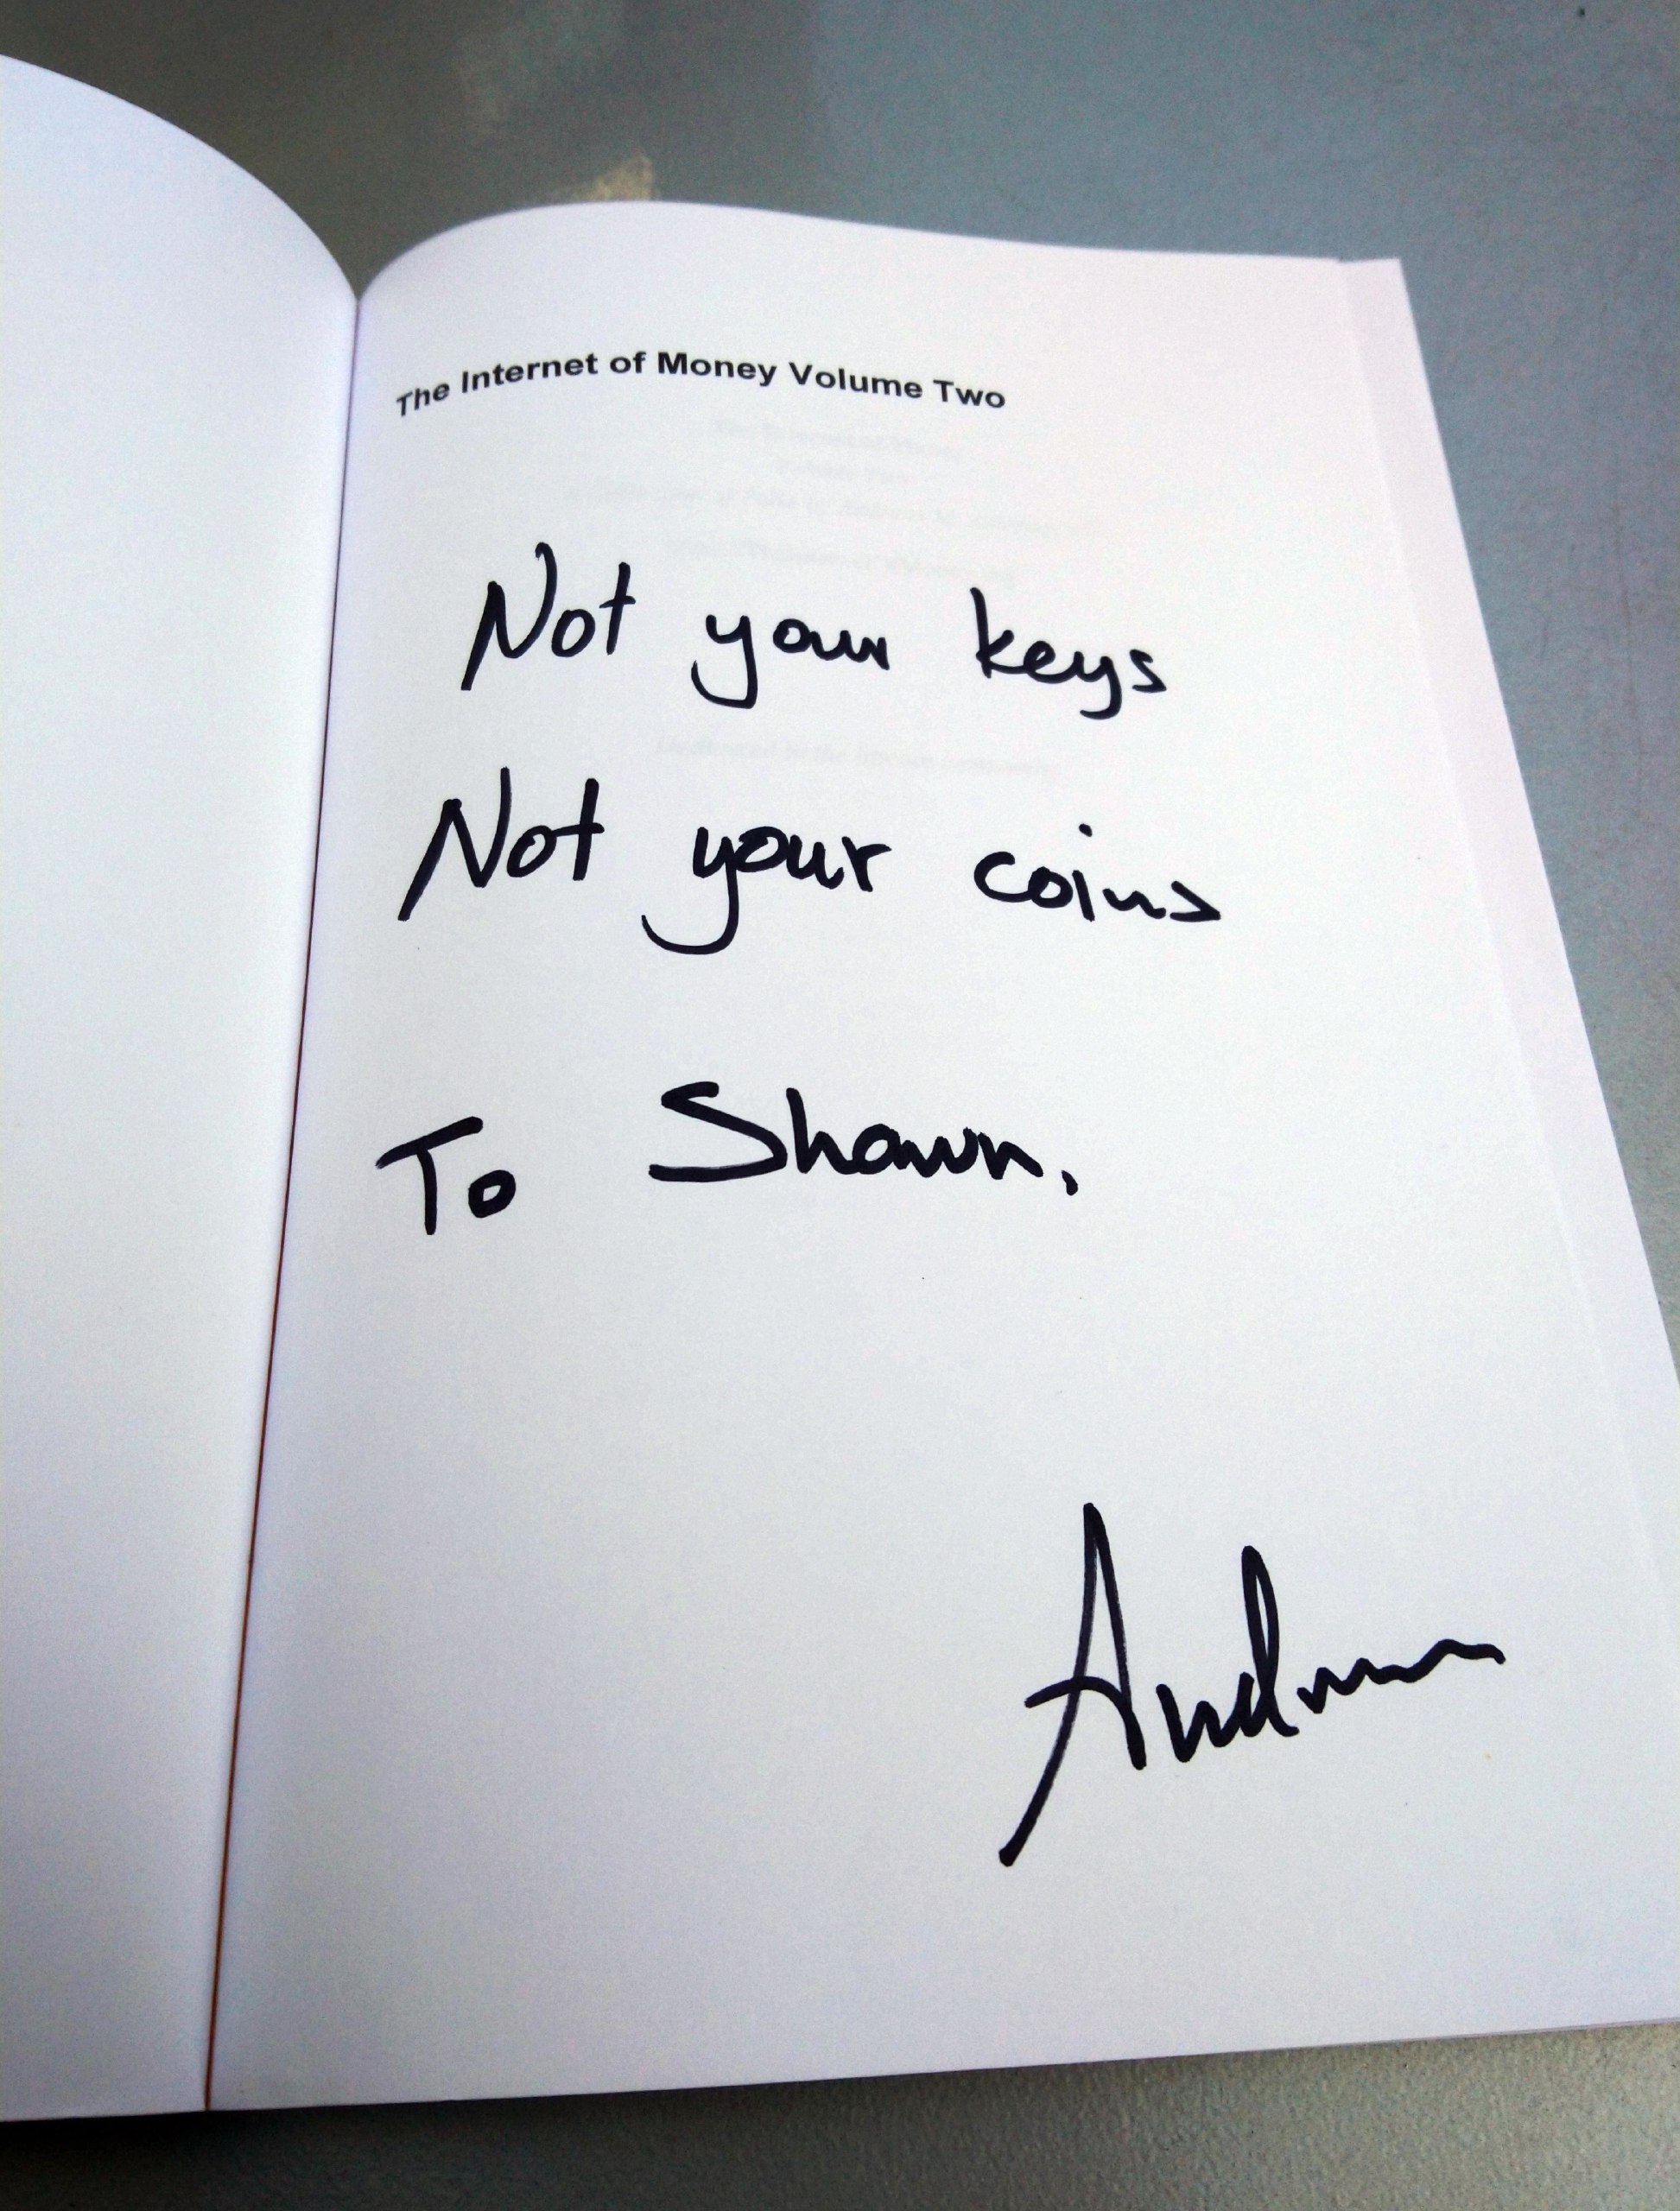 The Internet of Money Volume Two
Not your keys
Not your coins
To Shawn.
Andreas